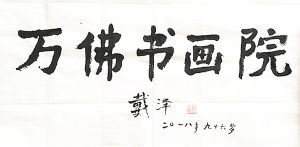 万佛书画院
戴泽
二〇一八年九十六岁